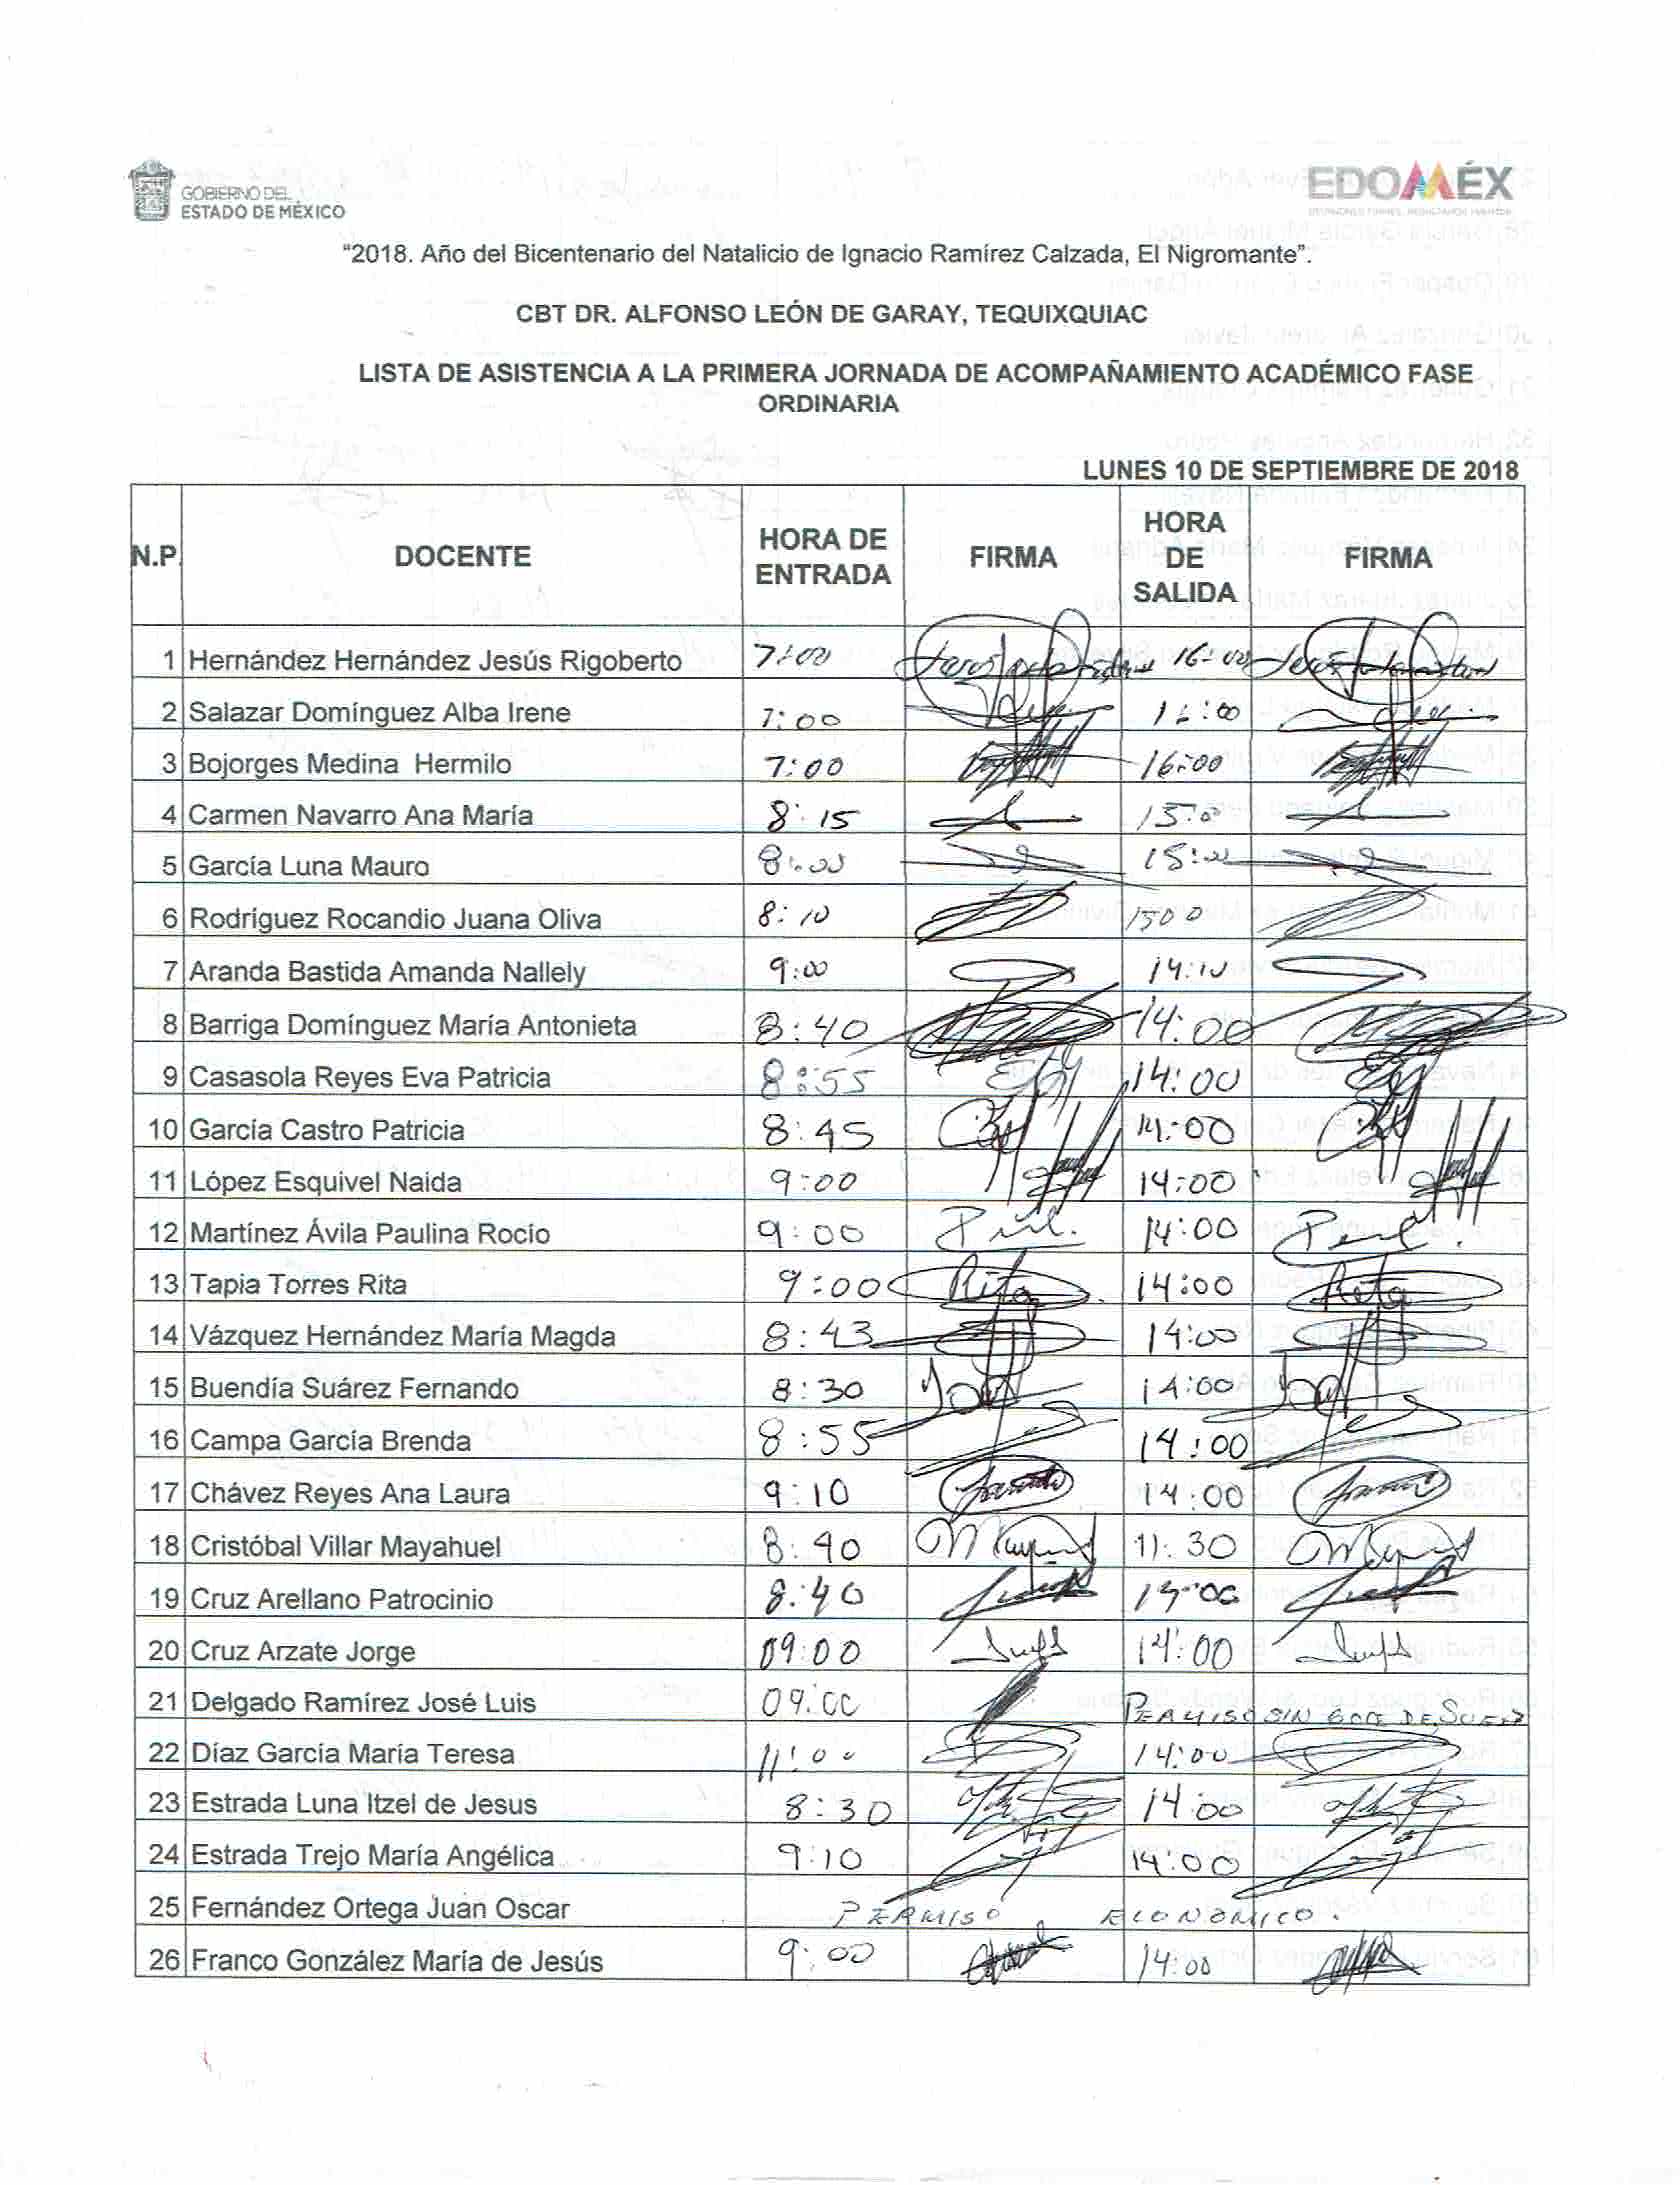 GOBIERNO DEL
ESTADO DE MÉXICO
EDOMÉX
DECISIONES FIRMES, RESULTADOS FUERTES
“2018. Año del Bicentenario del Natalicio de Ignacio Ramírez Calzada, El Nigromante”.
CBT DR. ALFONSO LEÓN DE GARAY, TEQUIXQUIAC
LISTA DE ASISTENCIA A LA PRIMERA JORNADA DE ACOMPAÑAMIENTO ACADÉMICO FASE
ORDINARIA
LUNES 10 DE SEPTIEMBRE DE 2018
N.P. DOCENTE HORA DE ENTRADA FIRMA HORA DE SALIDA FIRMA
1 Hernández Hernández Jesús Rigoberto 7:00 16:00
2 Salazar Domínguez Alba Irene 7:00 16:00
3 Bojorges Medina Hermilo 7:00 16:00
4 Carmen Navarro Ana María 8:15 15:00
5 García Luna Mauro 8:00 15:00
6 Rodríguez Rocandio Juana Oliva 8:10 1500
7 Aranda Bastida Amanda Nallely 9:00 14:10
8 Barriga Domínguez María Antonieta 8:40 14:00
9 Casasola Reyes Eva Patricia 8:55 14:00
10 García Castro Patricia 8:45 14:00
11 López Esquivel Naida 9:00 14:00
12 Martínez Ávila Paulina Rocío 9:00 14:00
13 Tapia Torres Rita 9:00 Rita 14:00 Rita
14 Vázquez Hernández María Magda 8:43 14:00
15 Buendía Suárez Fernando 8:30 14:00
16 Campa García Brenda 8:55 14:00
17 Chávez Reyes Ana Laura 9:10 14:00
18 Cristóbal Villar Mayahuel 8:40 11:30
19 Cruz Arellano Patrocinio 8:40 14:00
20 Cruz Arzate Jorge 09:00 14:00
21 Delgado Ramírez José Luis 09:00 PERMISO SIN GOCE DE SUELDO
22 Díaz García María Teresa 11:00 14:00
23 Estrada Luna Itzel de Jesus 8:30 14:00
24 Estrada Trejo María Angélica 9:10 14:00
25 Fernández Ortega Juan Oscar PERMISO ECONOMICO.
26 Franco González María de Jesús 9:00 14:00